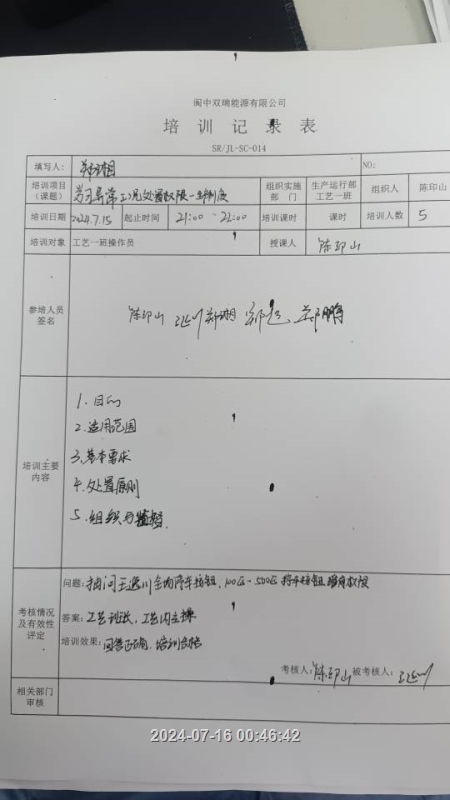 阆中双瑞能源有限公司
培训记录表
SR/JL-SC-014
填写人： 郑湘 NO:
培训项目（课题） 异常工况处置权限 制度 组织实施部门 生产运行部工艺一班 组织人 陈印山
培训日期 2024.7.15 起止时间 21:00-22:00 培训课时 课时 培训人数 5
培训对象 工艺一班操作员 授课人 陈印山
参培人员签名 陈印山 郑湘 郑鹏
培训主要内容
1.目的
2.适用范围
3.基本要求
4.处置原则
5.组织与
考核情况及有效性评定
问题：抽问王逸川全场停车按钮、100区-500区停车按钮 权限
答案：工艺 工艺内主操
培训效果：回答正确，培训合格
考核人：陈印山 被考核人：
相关部门审核
2024-07-16 00:46:42